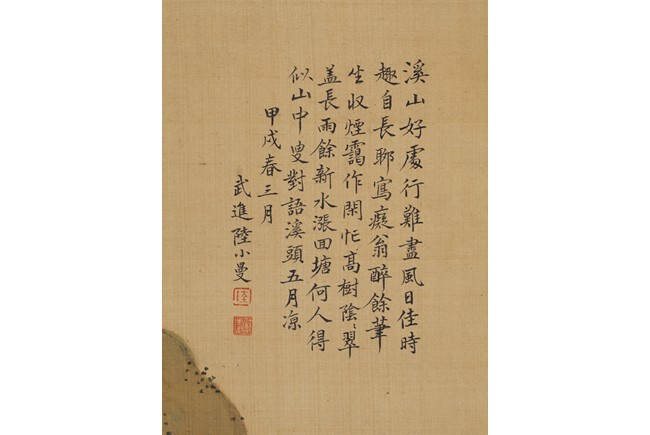 溪山好處行難盡風日佳時
趣自長聊寫癡翁醉餘筆
坐収煙靄作閑忙高樹陰〻翠
盖長雨餘新水漲囬塘何人得
似山中叟對語溪頭五月凉
甲戌春三月
武進陸小曼